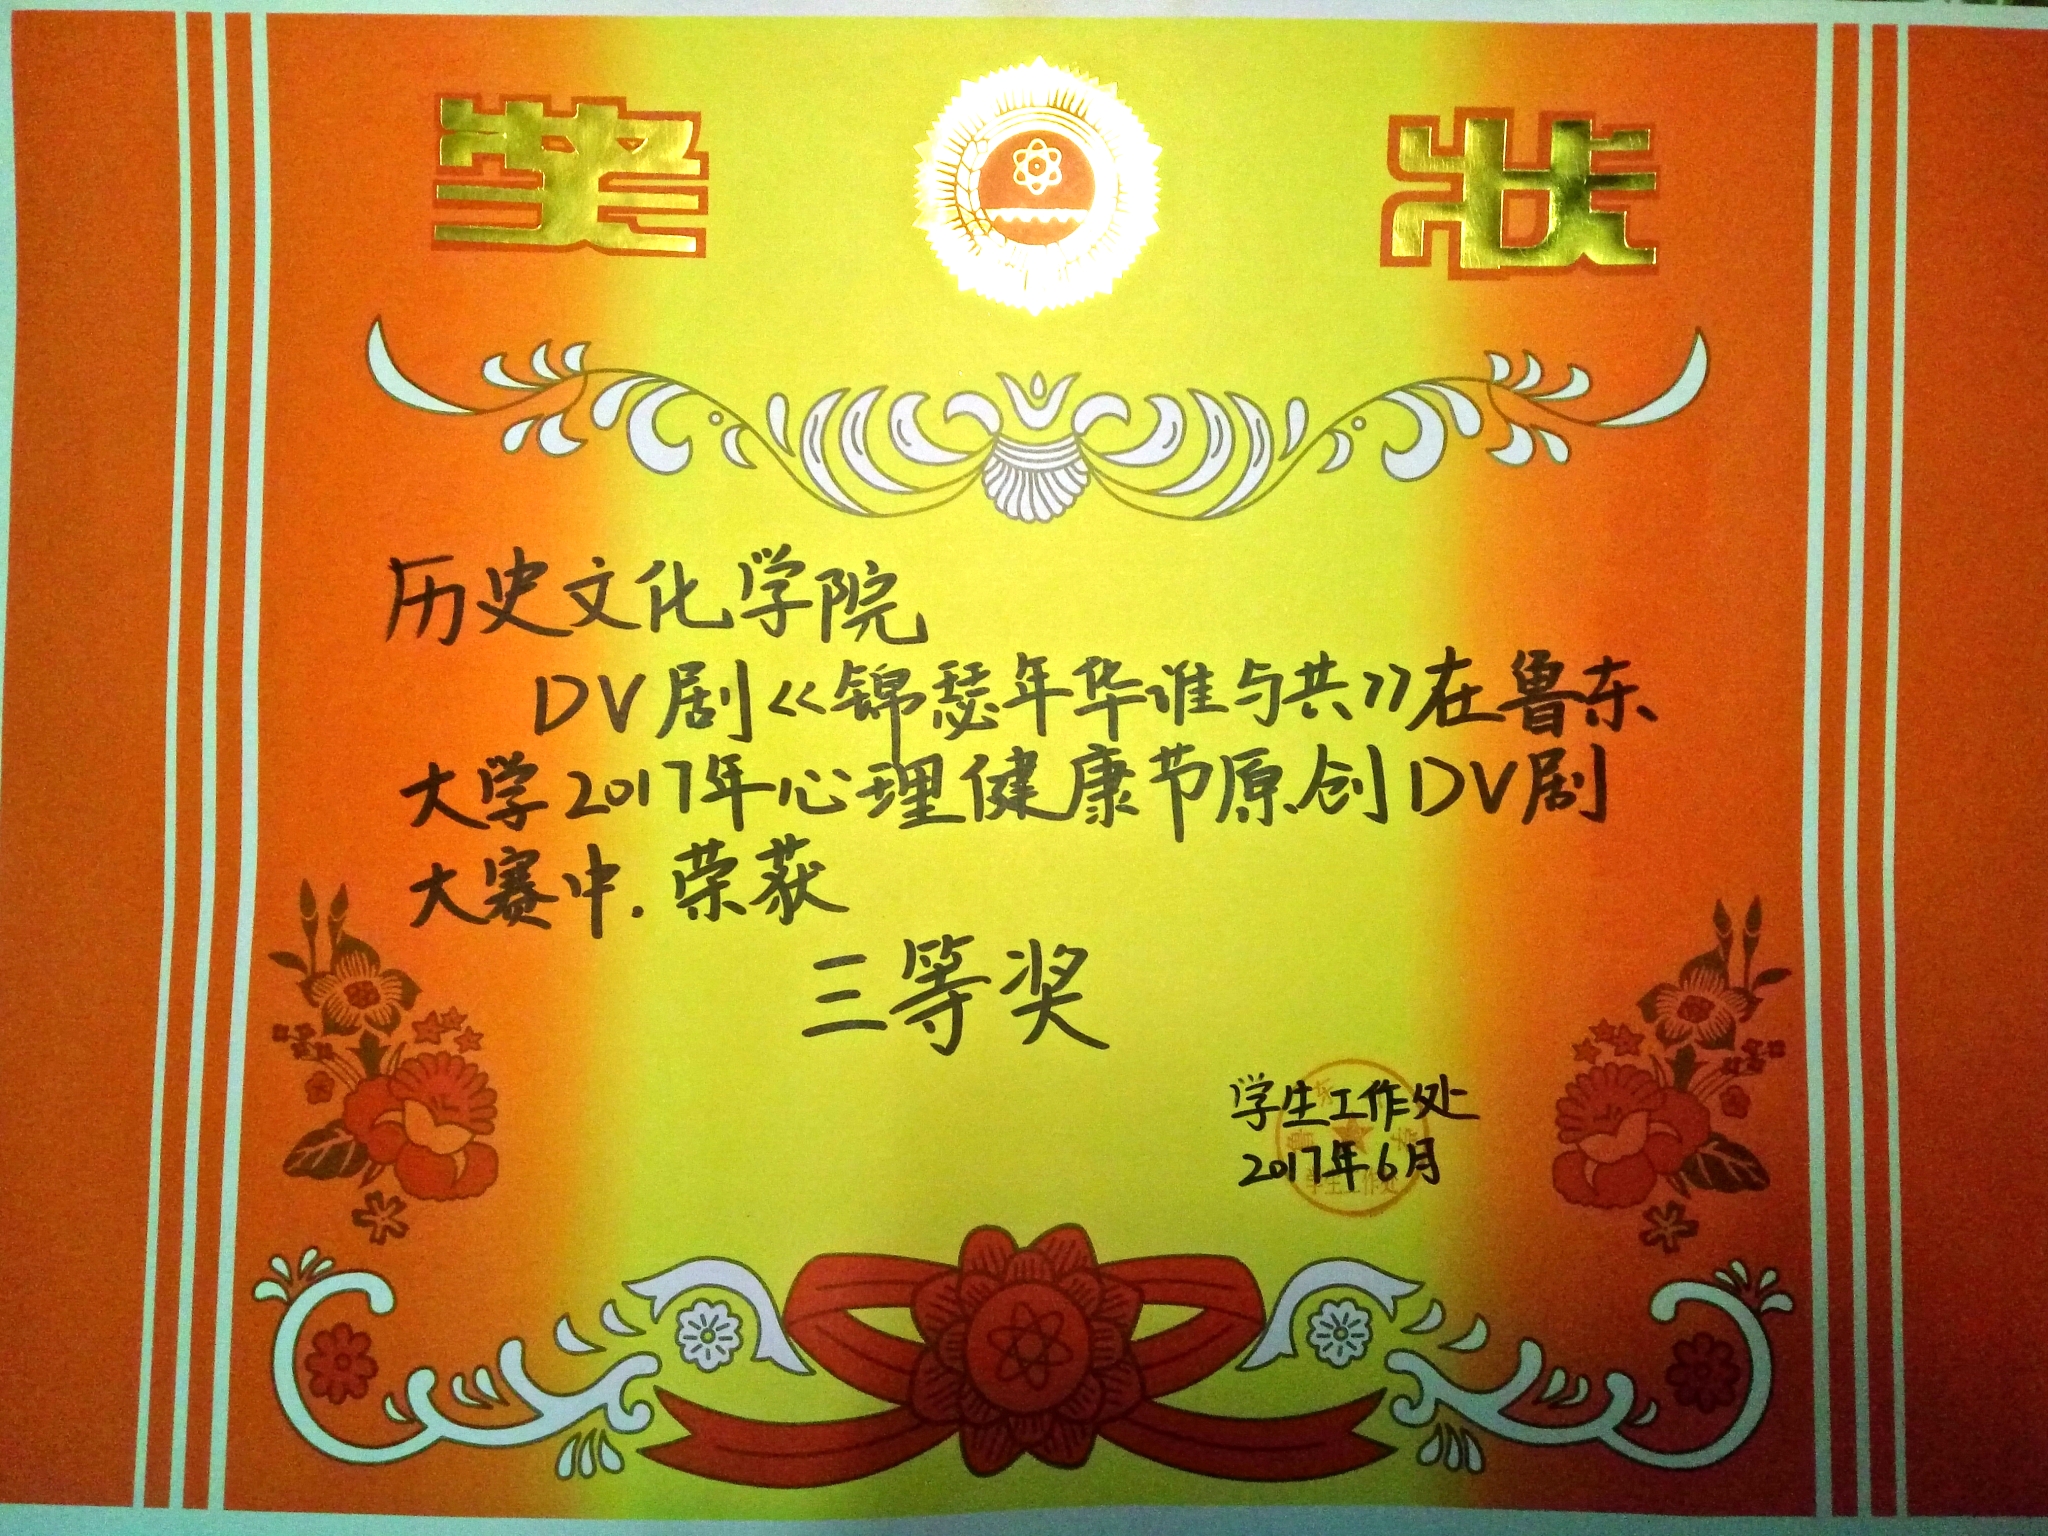 奖 状
历史文化学院
DV剧《锦瑟年华谁与共》在鲁东
大学2017年心理健康节原创DV剧
大赛中.荣获
三等奖
学生工作处
2017年6月
学生工作处